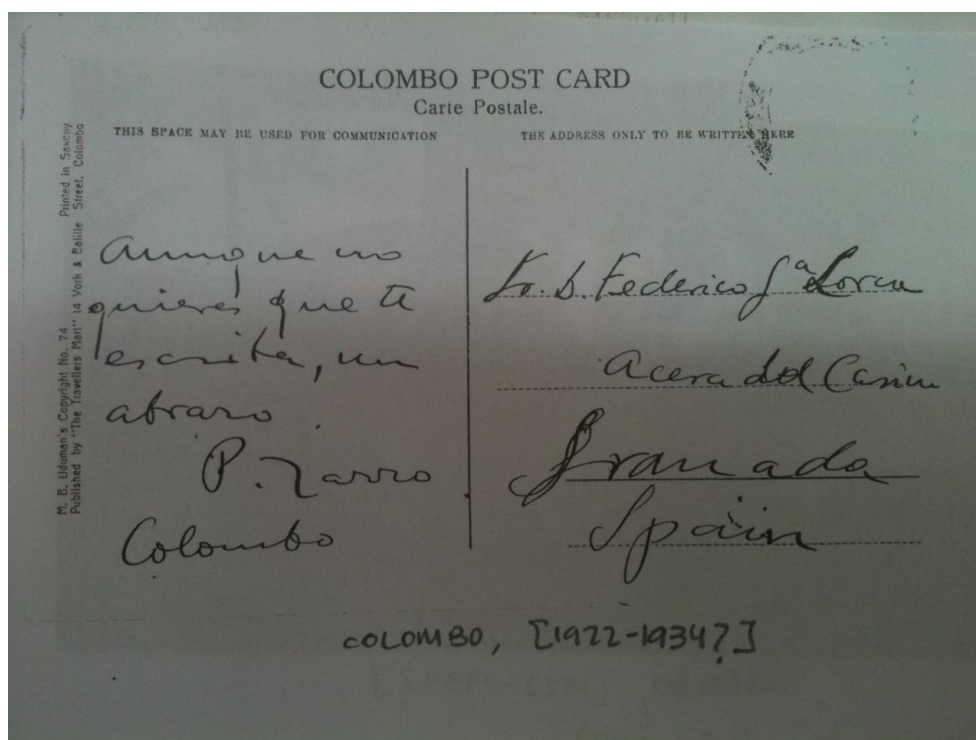 COLOMBO POST CARD
Carte Postale.
THIS SPACE MAY BE USED FOR COMMUNICATION
THE ADDRESS ONLY TO BE WRITTEN HERE
M. B. Uduman's Copyright No. 74 Printed in Saxony
Published by "The Travellers Mart" 14 York & Baillie Street, Colombo
Aunque no
quieres que te
escriba, un
abrazo.
P.
Colombo
Sr. D. Federico Gª Lorca
Acera del Casino
Granada
Spain
COLOMBO, [1922-1934?]